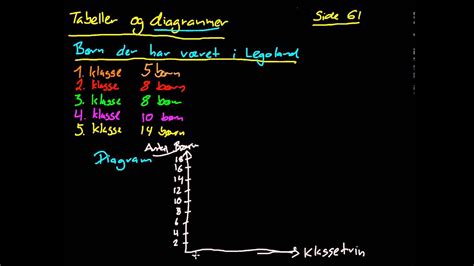 Tabeller og diagrammer Side 61
Børn der har været i Legoland
1. klasse 5 børn
2. klasse 8 børn
3. klasse 8 børn
4. klasse 10 børn
5. klasse 14 børn
Diagram Antal Børn
18
16
14
12
10
8
6
4
2
Klassetrin